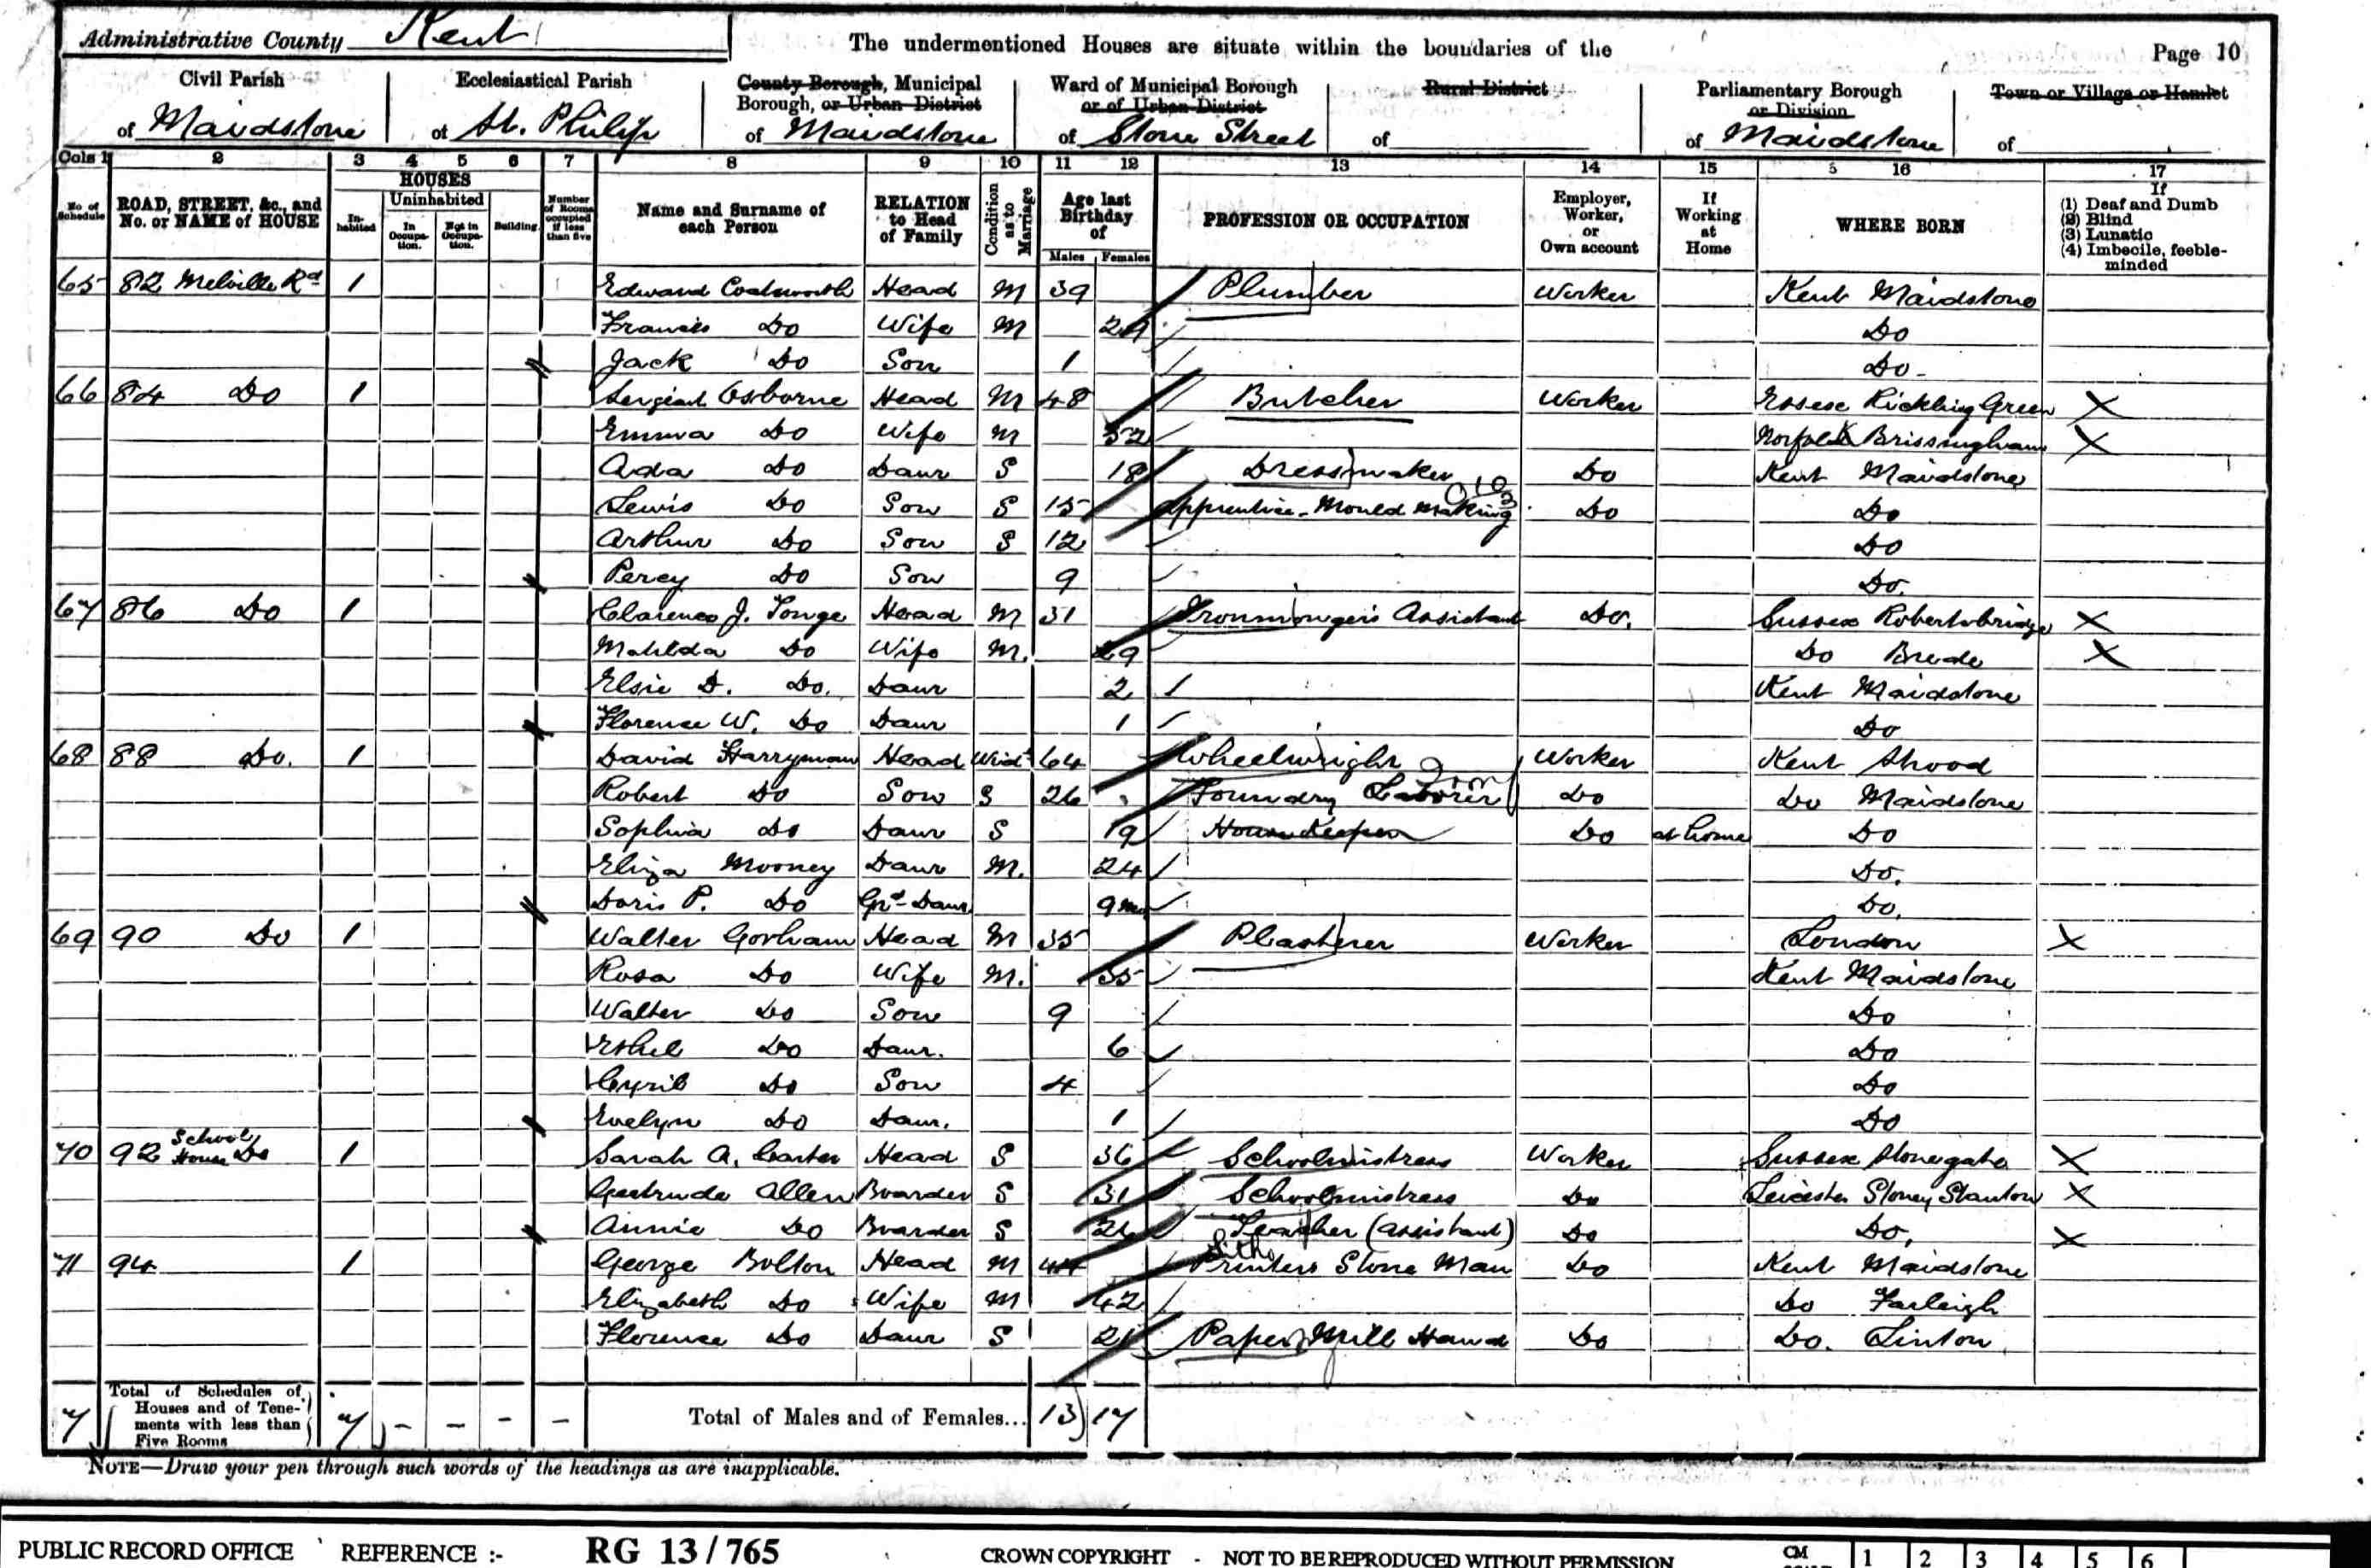 Administrative County Kent
The undermentioned Houses are situate within the boundaries of the
Page 10
Civil Parish of Maidstone
Ecclesiastical Parish of St. Philip
County Borough, Municipal Borough, or Urban District of Maidstone
Ward of Municipal Borough or of Urban District of Stone Street
Rural District of
Parliamentary Borough or Division of Maidstone
Town or Village or Hamlet of
Cols 1 2 3 4 5 6 7 8 9 10 11 12 13 14 15 16 17
No of Schedule
ROAD, STREET, &c., and No. or NAME of HOUSE
HOUSES
Inhabited
Uninhabited
In Occupation.
Not in Occupation.
Building
Number of Rooms occupied if less than five
Name and Surname of each Person
RELATION to Head of Family
Condition as to Marriage
Age last Birthday of
Males Females
PROFESSION OR OCCUPATION
Employer, Worker, or Own account
If Working at Home
WHERE BORN
If
(1) Deaf and Dumb
(2) Blind
(3) Lunatic
(4) Imbecile, feeble-minded
65 82 Melville Rd 1 Edward Head M 39 Plumber Worker Kent Maidstone
Francis Do Wife M Do
Jack Do Son 1 Do
66 84 Do 1 Sergeant Osborne Head M 48 Butcher Worker Essex Rickling Green X
Emma Do Wife M 52 Norfolk Brissingham X
Ada Do Daur S 18 Dressmaker Do Kent Maidstone
Lewis Do Son S 15 Apprentice - Mould Making Do Do
Arthur Do Son S 12 Do
Percy Do Son 9 Do.
67 86 Do 1 Clarence J. Tonge Head M 31 Ironmonger's Assistant Do. Sussex Robertsbridge X
Matilda Do Wife M. 29 Do Brede X
Elsie D. Do. Daur 2 Kent Maidstone
Florence W. Do Daur 1 Do
68 88 Do. 1 David Harryman Head Widr 64 Wheelwright Worker Kent Strood
Robert Do Son S 26 Foundry Laborer Iron Do Do Maidstone
Sophia Do Daur S 19 Housekeeper Do at home Do
Eliza Mooney Daur M. 24 Do.
Doris P. Do Grd-Daur 9 mo Do.
69 90 Do 1 Walter Gorham Head M 35 Plasterer Worker London X
Rosa Do Wife M. 35 Kent Maidstone
Walter Do Son 9 Do
Ethel Do Daur. 6 Do
Cyril Do Son 4 Do
Evelyn Do Daur. 1 Do
70 92 School House Do 1 Sarah A. Carter Head S 36 Schoolmistress Worker Sussex Stonegate X
Gertrude Allen Boarder S 31 Schoolmistress Do Leicester Stoney Stanton X
Annie Do Boarder S Teacher (assistant) Do Do. X
71 94 1 George Bolton Head M 44 Litho Printers Stone Man Do Kent Maidstone
Elizabeth Do Wife M 42 Do Farleigh
Florence Do Daur S 21 Paper Mill Hand Do Do. Linton
7 Total of Schedules of Houses and of Tenements with less than Five Rooms 7 - - - - Total of Males and of Females... 13 17
NOTE—Draw your pen through such words of the headings as are inapplicable.
PUBLIC RECORD OFFICE REFERENCE :- RG 13 / 765 CROWN COPYRIGHT - NOT TO BE REPRODUCED WITHOUT PERMISSION CM 1 2 3 4 5 6